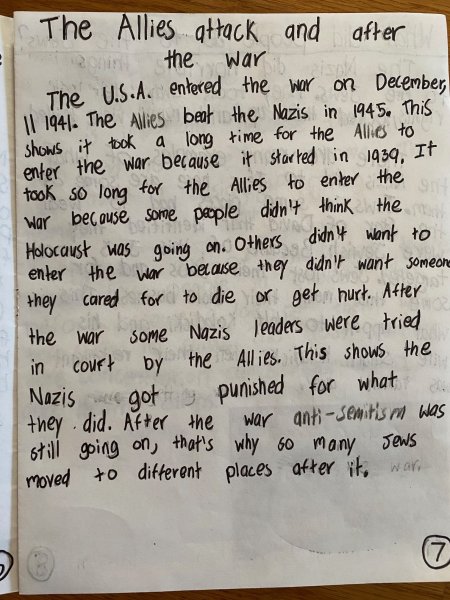 The Allies attack and after
the war
The U.S.A. entered the war on December,
11 1941. The Allies beat the Nazis in 1945. This
shows it took a long time for the Allies to
enter the war because it started in 1939. It
took so long for the Allies to enter the
war because some people didn't think the
Holocaust was going on. Others didn't want to
enter the war because they didn't want someone
they cared for to die or get hurt. After
the war some Nazis leaders were tried
in court by the Allies. This shows the
Nazis got punished for what
they did. After the war anti-semitism was
still going on, that's why so many Jews
moved to different places after it. war.
7